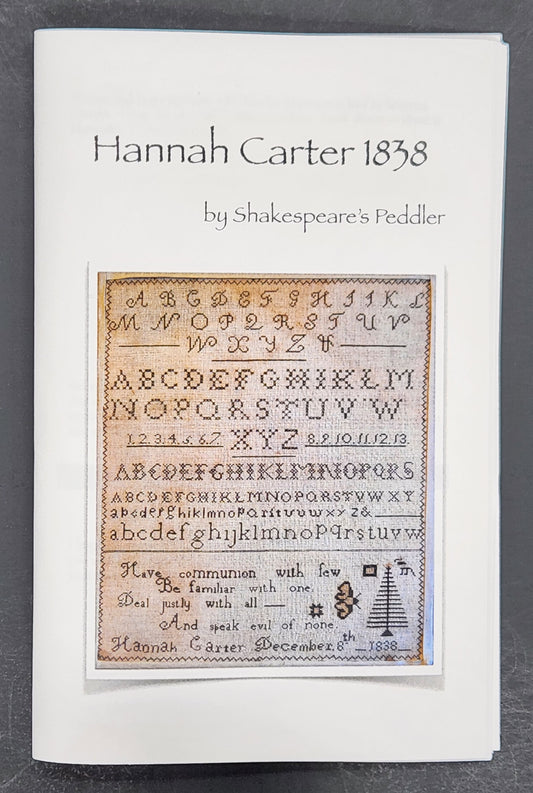 Hannah Carter 1838
by Shakespeare's Peddler
A B C D E F G H I J K L
M N O P Q R S T U V
W X Y Z &
A B C D E F G H I K L M
N O P Q R S T U V W
1.2.3.4.5.6.7 X Y Z 8.9.10.11.12.13
A B C D E F G H I K L M N O P Q R S
A B C D E F G H I K L M N O P Q R S T V W X Y
a b c d e f g h i k l m n o p q r s t u v w x y z &
a b c d e f g h i j k l m n o p q r s t u v w
Have communion with few
Be familiar with one.
Deal justly with all
And speak evil of none.
Hannah Carter December 8th 1838